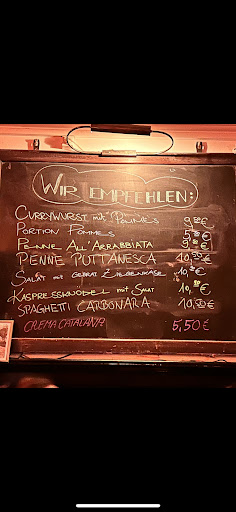 WIR EMPFEHLEN:
CURRYWURST mit POMMES 9,50€
PORTION POMMES 5,50€
PENNE ALL'ARRABBIATA 9,50€
PENNE PUTTANESCA 10,50€
SALAT mit GEBRAT. ZIEGENKÄSE 10,50€
KASPRESSKNÖDEL mit SALAT 10,50€
SPAGHETTI CARBONARA 10,50€
CREMA CATALANA 5,50€